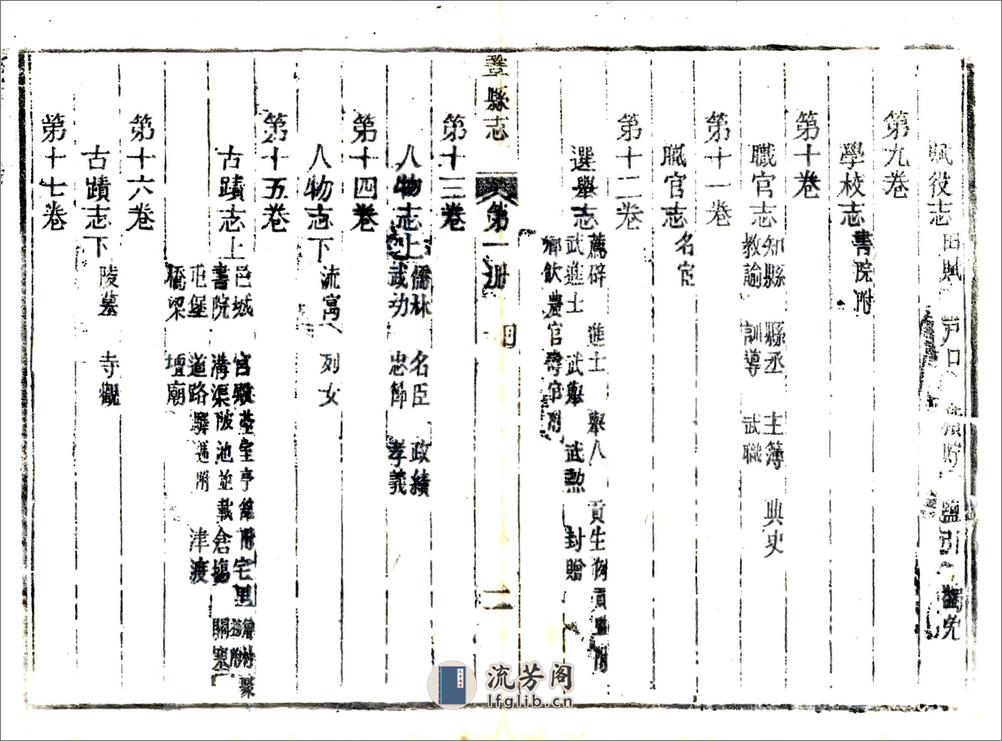 賦役志 田賦 戶口 積貯 鹽引 蠲免
第九卷
學校志 書院附
第十卷
職官志 知縣 縣丞 主簿 典史
教諭 訓導 武職
第十一卷
職官志 名宦
第十二卷
選舉志 薦辟 進士 舉人 貢生例貢監附
武進士 武舉 武勲 封贈
鄉飲農官壽官附
豐縣志 第一冊 目 二
第十三卷
人物志上 儒林 名臣 政績
武功 忠節 孝義
第十四卷
人物志下 流寓 列女
第十五卷
古蹟志上 邑城 宮殿臺室亭 附宅里
書院 溝渠陂池並載倉場 關寨
屯堡 道路驛遞附 津渡
橋梁 壇廟
第十六卷
古蹟志下 陵墓 寺觀
第十七卷
流芳阁
lfglib.cn